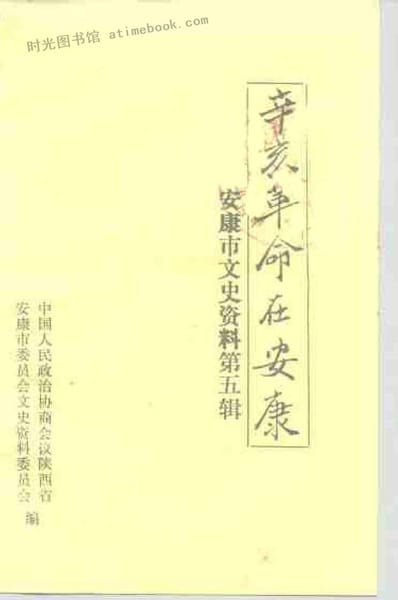 时光图书馆 atimebook.com
辛亥革命在安康
安康市文史资料第五辑
中国人民政治协商会议陕西省
安康市委员会文史资料委员会
编